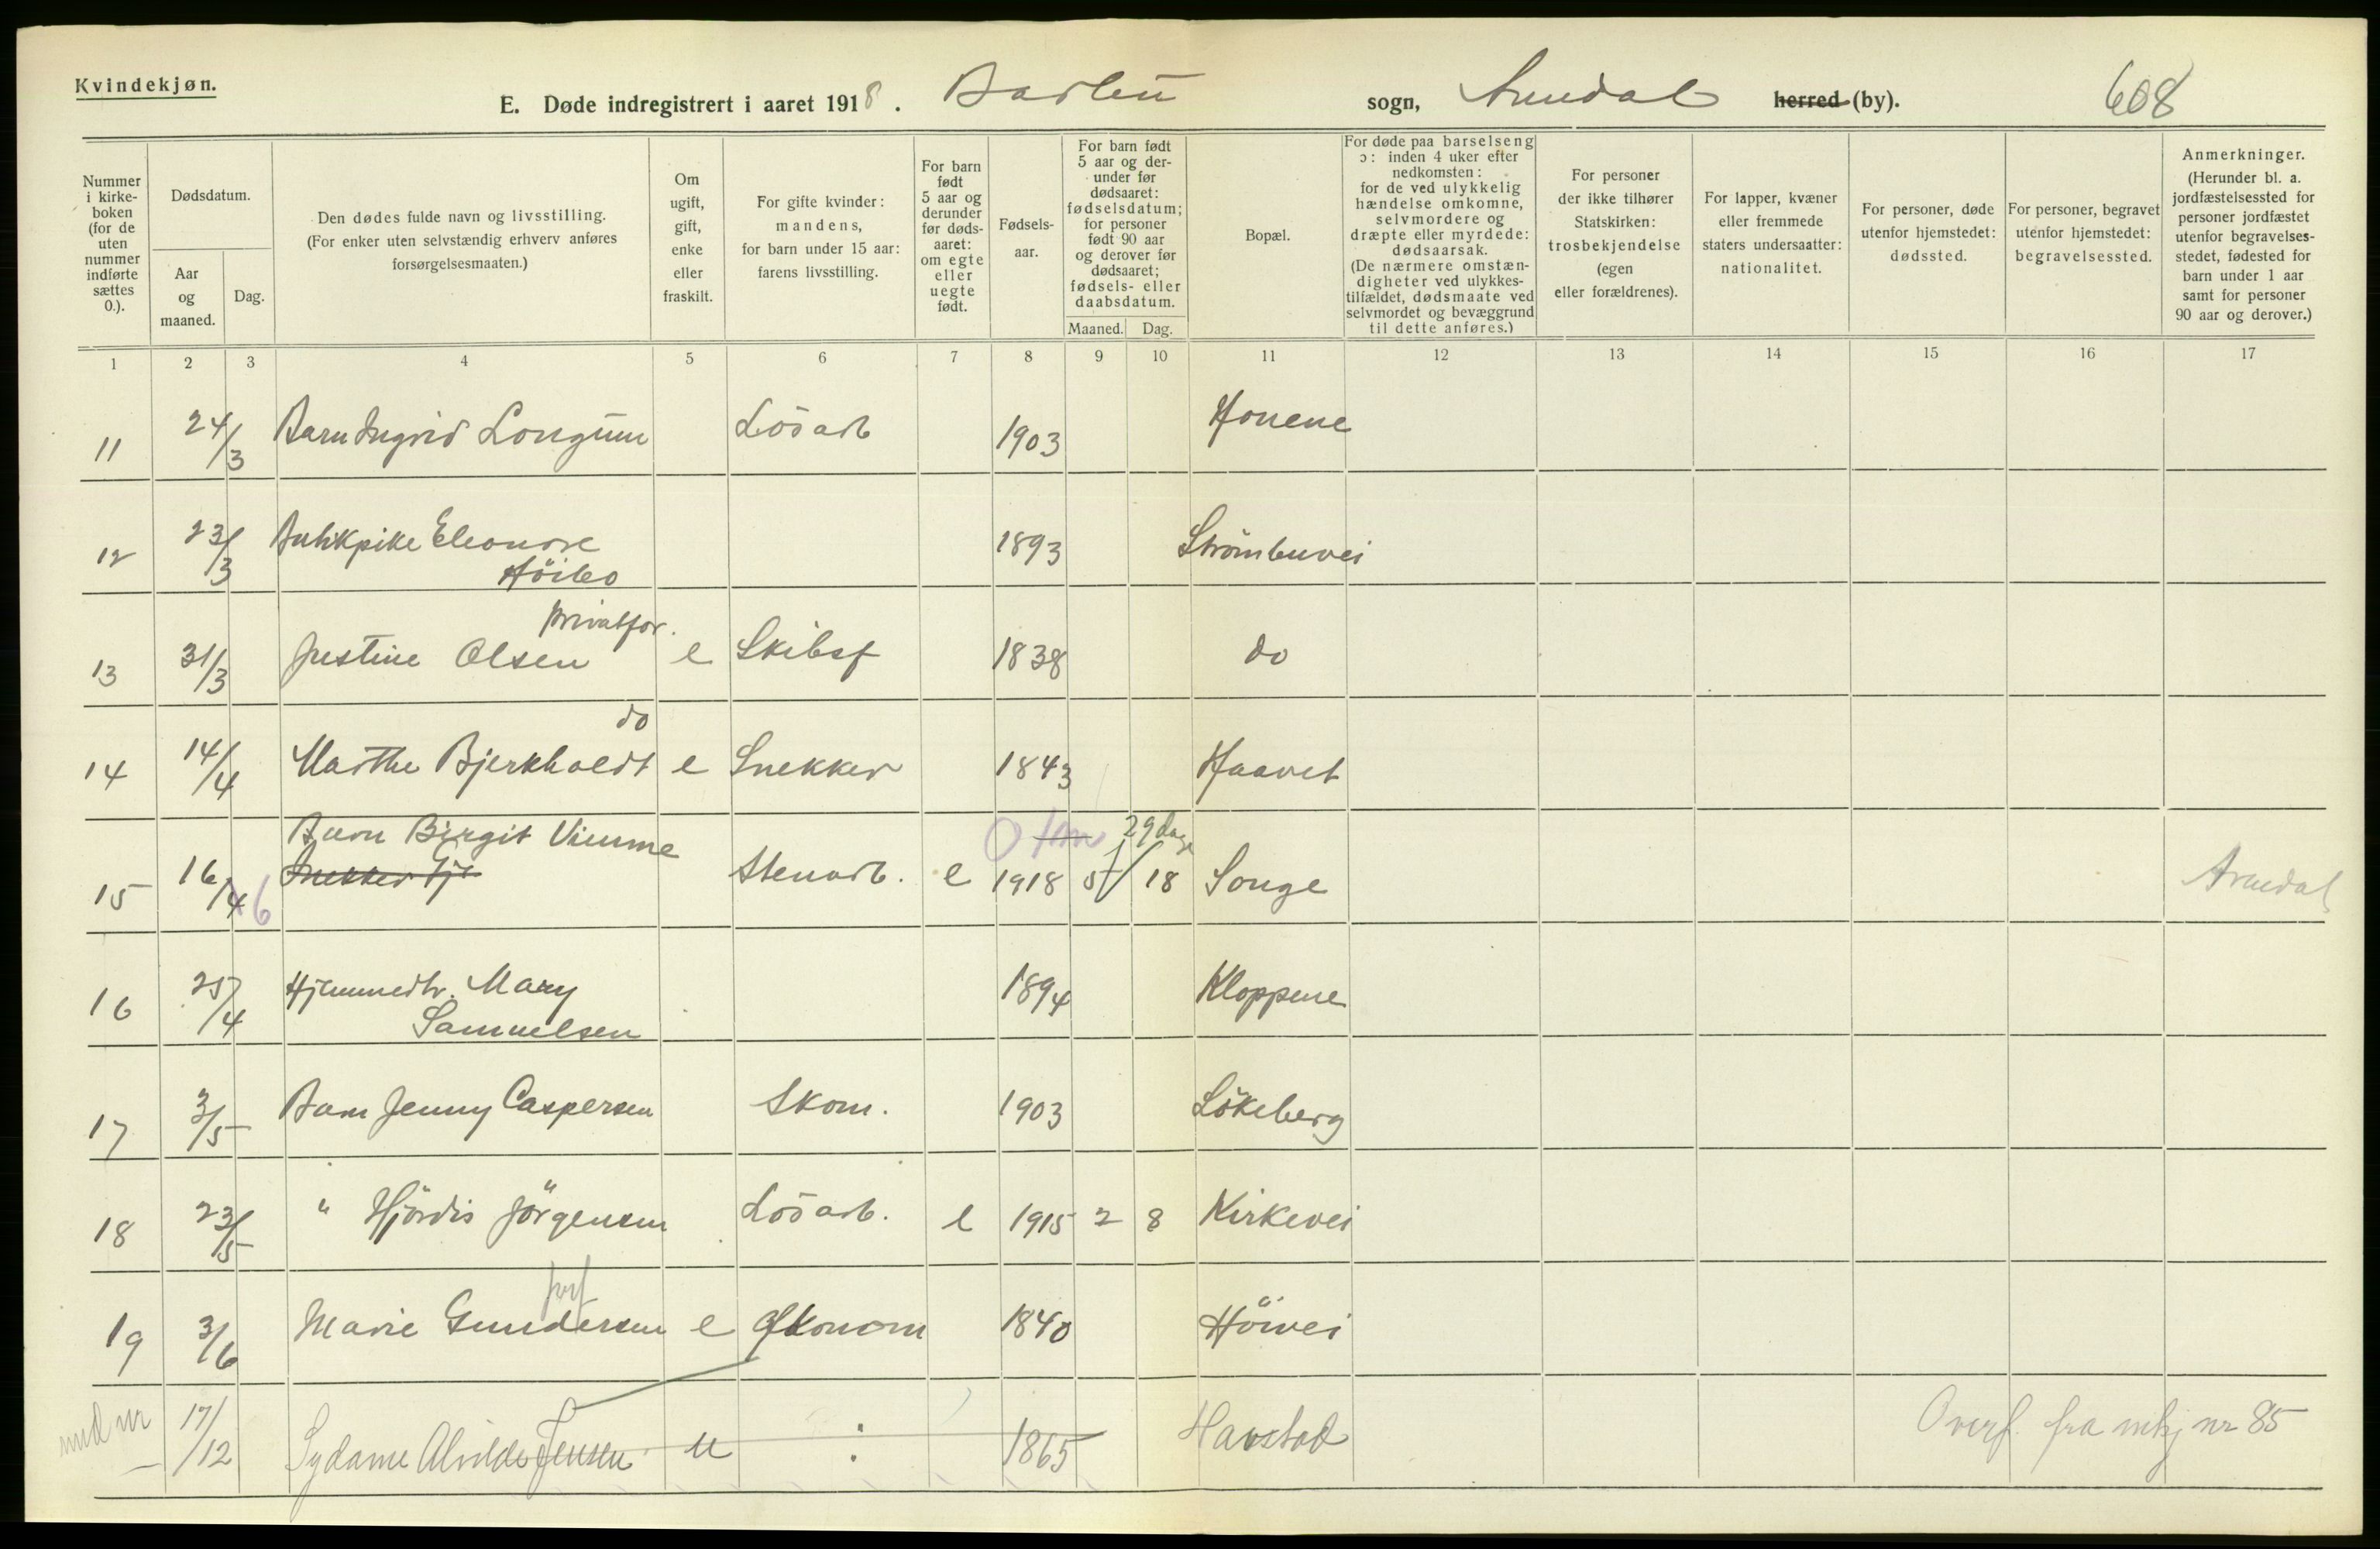 Kvindekjøn.
E. Døde indregistrert i aaret 1918. Barbu sogn, Arendal herred (by). 608
Nummer i kirkeboken (for de uten nummer indførte sættes 0.).
Dødsdatum.
Aar og maaned.
Dag.
Den dødes fulde navn og livsstilling. (For enker uten selvstændig erhverv anføres forsørgelsesmaaten.)
Om ugift, gift, enke eller fraskilt.
For gifte kvinder: mandens, for barn under 15 aar: farens livsstilling.
For barn født 5 aar og derunder før dødsaaret: om egte eller uegte født.
Fødselsaar.
For barn født 5 aar og derunder før dødsaaret: fødselsdatum; for personer født 90 aar og derover før dødsaaret; fødsels- eller daabsdatum.
Maaned. Dag.
Bopæl.
For døde paa barselseng ɔ: inden 4 uker efter nedkomsten: for de ved ulykkelig hændelse omkomne, selvmordere og dræpte eller myrdede: dødsaarsak. (De nærmere omstændigheter ved ulykkestilfældet, dødsmaate ved selvmordet og bevæggrund til dette anføres.)
For personer der ikke tilhører Statskirken: trosbekjendelse (egen eller forældrenes).
For lapper, kvæner eller fremmede staters undersaatter: nationalitet.
For personer, døde utenfor hjemstedet: dødssted.
For personer, begravet utenfor hjemstedet: begravelsessted.
Anmerkninger. (Herunder bl. a. jordfæstelsessted for personer jordfæstet utenfor begravelsesstedet, fødested for barn under 1 aar samt for personer 90 aar og derover.)
1 2 3 4 5 6 7 8 9 10 11 12 13 14 15 16 17
11 24/3 Barn Ingrid Longum Lösarb 1903 Honene
12 23/3 Butikpike Eleonore 1893 Strömbuvei
Höibo
privatfor.
13 31/3 Justine Olsen e Skibsf 1838 do
do
14 14/4 Marthe Bjerkholdt e Snekker 1843 Haavet
Barn Birgit Vimme 29 dage
15 16/4 6 Snekker Stenarb. e 1918 5/ 18 Songe Arendal
16 25/4 Hjemmedtr. Mary 1894 Kloppene
Samuelsen
17 3/5 Barn Jenny Caspersen Skom. 1903 Lökeberg
18 23/5 " Hjördis Jörgensen Lösarb. e 1915 2 8 Kirkevei
19 3/6 Marie Gundersen e Økonom 1840 Höivei
17/12 Alvilde Jensen u 1865 Havstad Overf. fra mkj nr 85